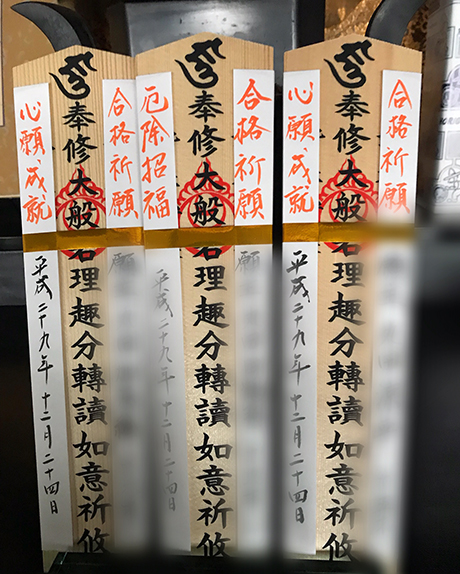 合格祈願
奉修大般若理趣分轉讀如意祈攸
心願成就
平成二十九年十二月二十四日
合格祈願
願
奉修大般若理趣分轉讀如意祈攸
厄除招福
平成二十九年十二月二十四日
合格祈願
願
奉修大般若理趣分轉讀如意祈攸
心願成就
平成二十九年十二月二十四日